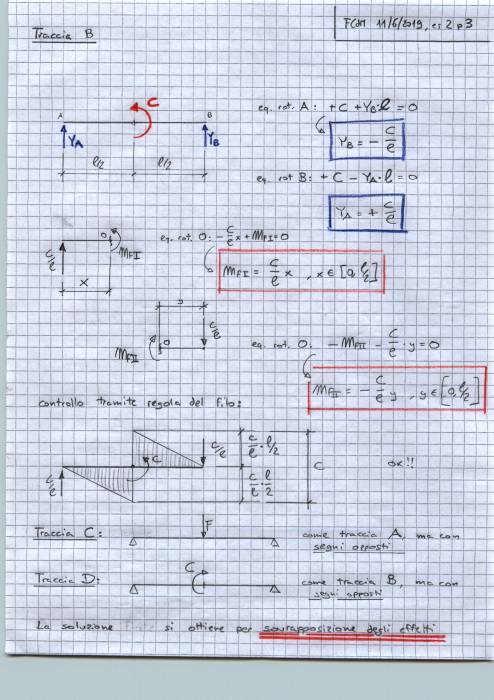 FCdM 11/6/2019, es 2 p3
Traccia B
A C B
Y_A Y_B
l/2 l/2
eq. rot. A: +C + Y_B·l = 0
Y_B = - C/l
eq. rot B: + C - Y_A·l = 0
Y_A = + C/l
C/l O M_FI
x
eq. rot. O: - C/l x + M_FI = 0
M_FI = C/l x , x ∈ [0, l/2]
y
M_FII O C/l
eq. rot. O: - M_FII - C/l · y = 0
M_FII = - C/l y , y ∈ [0, l/2]
controllo tramite regola del filo:
C/l C C/l
C/l · l/2
C/l · l/2
C
ok!!
Traccia C: F come traccia A, ma con
segni opposti
Traccia D: C come traccia B, ma con
segni opposti
La soluzione si ottiene per sovrapposizione degli effetti